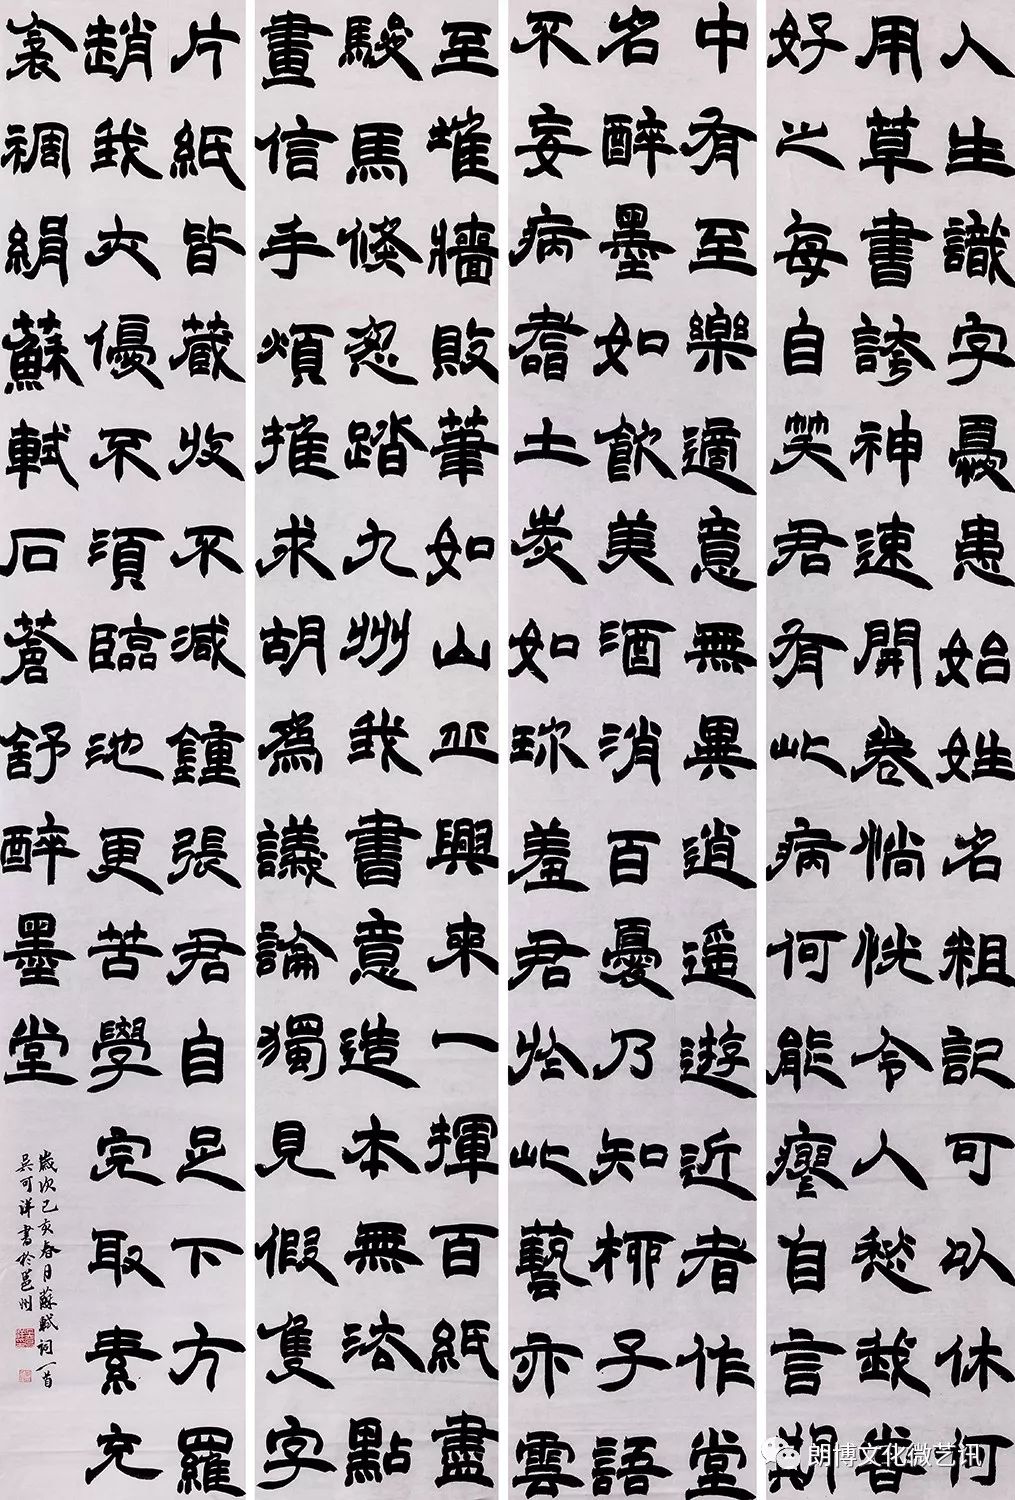 人生識字憂患始姓名粗記可以休何
用草書誇神速開卷惝恍令人愁我嘗
好之每自笑君有此病何能瘳自言期
中有至樂適意無異逍遙遊近者作堂
名醉墨如飲美酒消百憂乃知柳子語
不妄病嗜土炭如珍羞君於此藝亦雲
至堆牆敗筆如山丘興來一揮百紙盡
駿馬倏忽踏九州我書意造本無法點
畫信手煩推求胡為議論獨見假隻字
片紙皆藏收不減鍾張君自足下方羅
趙我亦優不須臨池更苦學完取素充
衾裯絹蘇軾石蒼舒醉墨堂
歲次己亥春日蘇軾詞一首
吳可洋書於邕州
朗博文化微艺讯